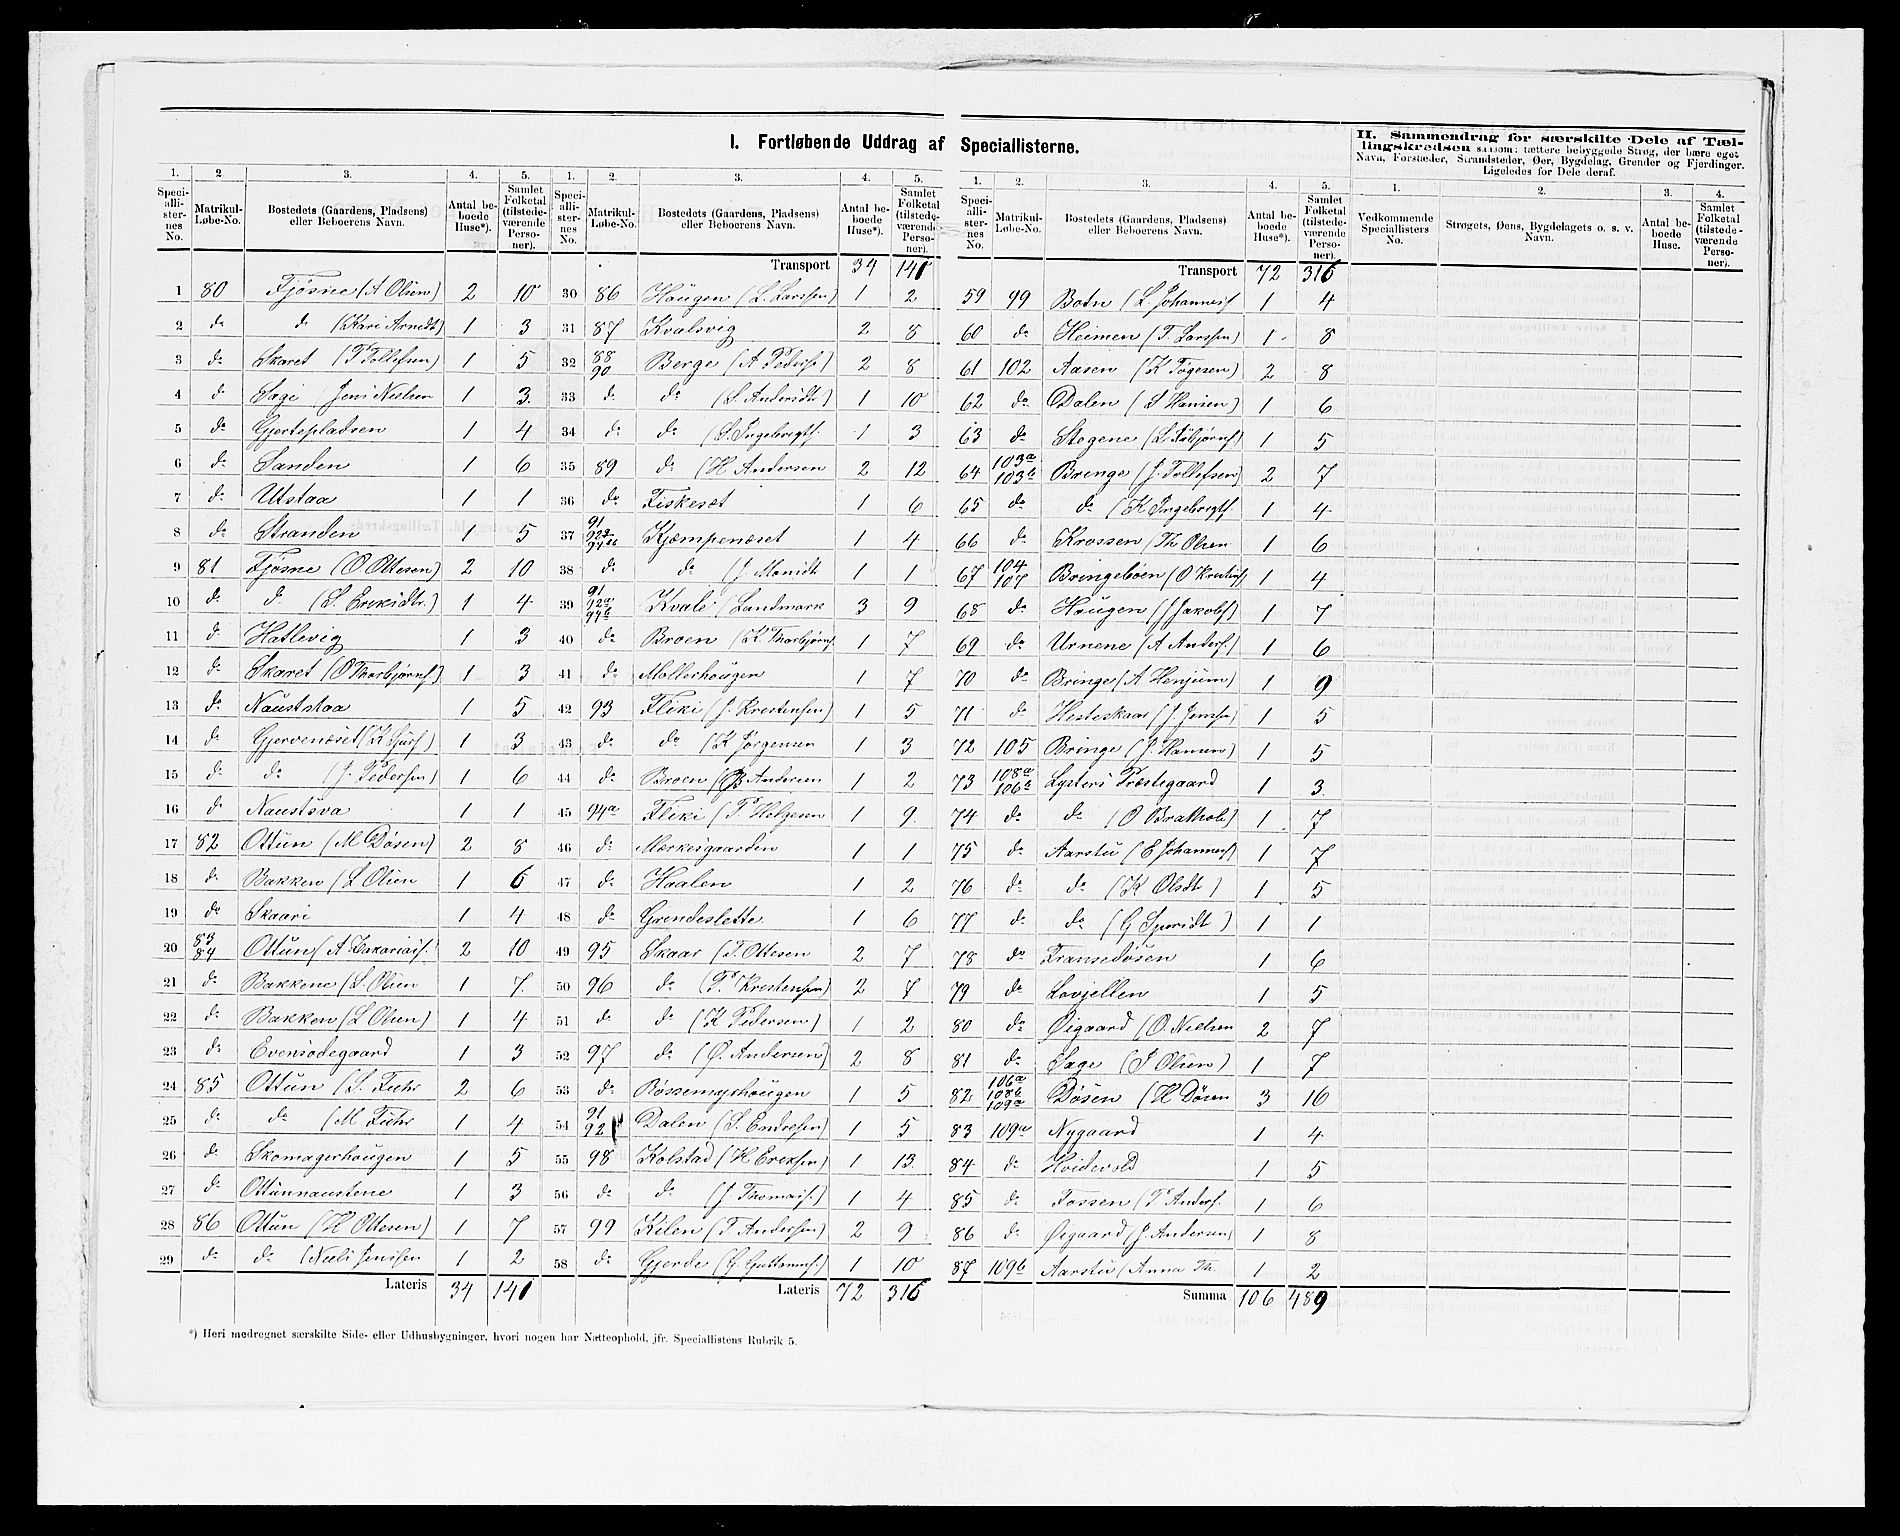 I. Fortløbende Uddrag af Speciallisterne.
II. Sammendrag for særskilte Dele af Tæl-
lingskredsen saasom: tættere bebyggede Strøg, der bære eget
Navn, Forstæder, Strandsteder, Øer, Bygdelag, Grender og Fjerdinger.
Ligeledes for Dele deraf.
1. 2 3. 4. 5.
Speciallisternes No. Matrikul-Løbe-No. Bostedets (Gaardens, Pladsens) eller Beboerens Navn. Antal beboede Huse*). Samlet Folketal (tilstedeværende Personer).
1 80 Fjøsne (A Olsen) 2 10
2 do do (Kari Arndt) 1 3
3 do Skaret (T Tollefsen) 1 5
4 do Sagi Jens Nielsen 1 3
5 do Gjertepladsen 1 4
6 do Sanden 1 6
7 do Utstaa 1 1
8 do Stranden 1 5
9 81 Fjøsne (O Ottesen) 2 10
10 do do (S. Eriksdtr.) 1 4
11 do Hatlevig 1 3
12 do Skaret (O Thorbjørns.) 1 3
13 do Nauststaa 1 5
14 do Gjervenæset (K Sjurs.) 1 3
15 do do (J. Pedersen) 1 6
16 do Naustsva 1 1
17 82 Ottun (M Døsen) 2 8
18 do Bakken (L Olsen 1 6
19 do Skaari 1 4
20 83 84 Ottun (A Zakariais. 2 10
21 do Bakkene (S. Olsen 1 7
22 do Bakken (L Olsen) 1 4
23 do Evensødegaard 1 3
24 85 Ottun (S. Fuhr 2 6
25 do do (M Fuhr 1 4
26 do Skomagerhougen 1 5
27 do Ottunnaustene 1 3
28 86 Ottun (H Ottesen) 1 7
29 do do (Niels Jensen 1 2
Lateris 34 141
1. 2. 3. 4. 5.
Speciallisternes No. Matrikul-Løbe-No. Bostedets (Gaardens, Pladsens) eller Beboerens Navn. Antal beboede Huse*). Samlet Folketal (tilstedeværende Personer).
Transport 34 141
30 86 Haugen (L. Larssen) 1 2
31 87 Kvalsvig 2 8
32 88 90 Berge (A Peders.) 2 8
33 do do (S. Andersdtr) 1 10
34 do do (S. Ingebrigts. 1 3
35 89 do (H Andersen 2 12
36 do Fiskesæt 1 6
37 91 92a 94b Kjæmpenæset 1 4
38 do do (J. Monsdt 1 1
39 91 92a 94b Kvale (Landmark 3 9
40 do Broen (K Thorbjørns. 1 7
41 do Mollerhougen 1 7
42 93 Fliki (J. Krestensen) 1 5
43 do do (K Jørgensen 1 3
44 do Broen (B Andersen 1 2
45 94a Fliki (P Helgesen 1 9
46 do Mærkesgaarden 1 1
47 do Haalen 1 2
48 do Grindeslette 1 6
49 95 Skaar (T. Ottesen 2 7
50 96 do (P. Krestensen) 2 7
51 do do (K Pedersen) 1 2
52 97 do (O. Andersen) 2 8
53 do Røssemyrhougen 1 5
54 91 92 Dalen (S. Endresen) 1 5
55 98 Kolstad (H Eriksen) 1 13
56 do do (J. Thomais.) 1 4
57 99 Kilen (T Andersen) 2 9
58 do Gjerde (G. Guttorms.) 1 10
Lateris 72 316
1. 2. 3. 4. 5.
Speciallisternes No. Matrikul-Løbe-No. Bostedets (Gaardens, Pladsens) eller Beboerens Navn. Antal beboede Huse*). Samlet Folketal (tilstedeværende Personer).
Transport 72 316
59 99 Botn (L. Johannes. 1 4
60 do Heimen (T. Larssen) 1 8
61 102 Aasen (K Tøgesen) 2 8
62 do Dalen (S Hansen) 1 6
63 do Stegene (L. Esbjørns.) 1 5
64 103a 103b Bringe (J. Tollefsen) 2 7
65 do do (K Ingebrigts. 1 4
66 do Krossen (Th Olsen 1 6
67 104 107 Bringebøen (O Krestens. 1 4
68 do Haugen (J Jakobs.) 1 7
69 do Urnene (A Anders.) 1 6
70 do Bringe (A Henjum) 1 9
71 do Hesteskaar (J. Jenssen) 1 5
72 105 Bringe (J. Hansen) 1 5
73 108a 106a Lysters Præstegaard 1 3
74 do do (O Brathole) 1 7
75 do Aarstu (E Johannes.) 1 7
76 do do (K Olsdt) 1 5
77 do do (G Sjursdt) 1 1
78 do Fransedøsen 1 6
79 do Lovjellen 1 5
80 do Øigaard (O. Nielsen 2 7
81 do Sage (J Olsen) 1 7
82 106a 108b 109a Døsen (H Døsen 3 16
83 109a Nygaard 1 4
84 do Hvidevold 1 5
85 do Fossen (P Anders. 1 6
86 do Øigaard (J. Andersen) 1 8
87 109b Aarstu (Anna Th. 1 2
Summa 106 489
1. 2. 3. 4.
Vedkommende Speciallisters No. Strøgets, Øens, Bygdelagets o. s. v. Navn. Antal beboede Huse. Samlet Folketal (tilstedeværende Personer).
*) Heri medregnet særskilte Side- eller Udhusbygninger, hvori nogen har Natteophold, jfr. Speciallistens Rubrik 5.